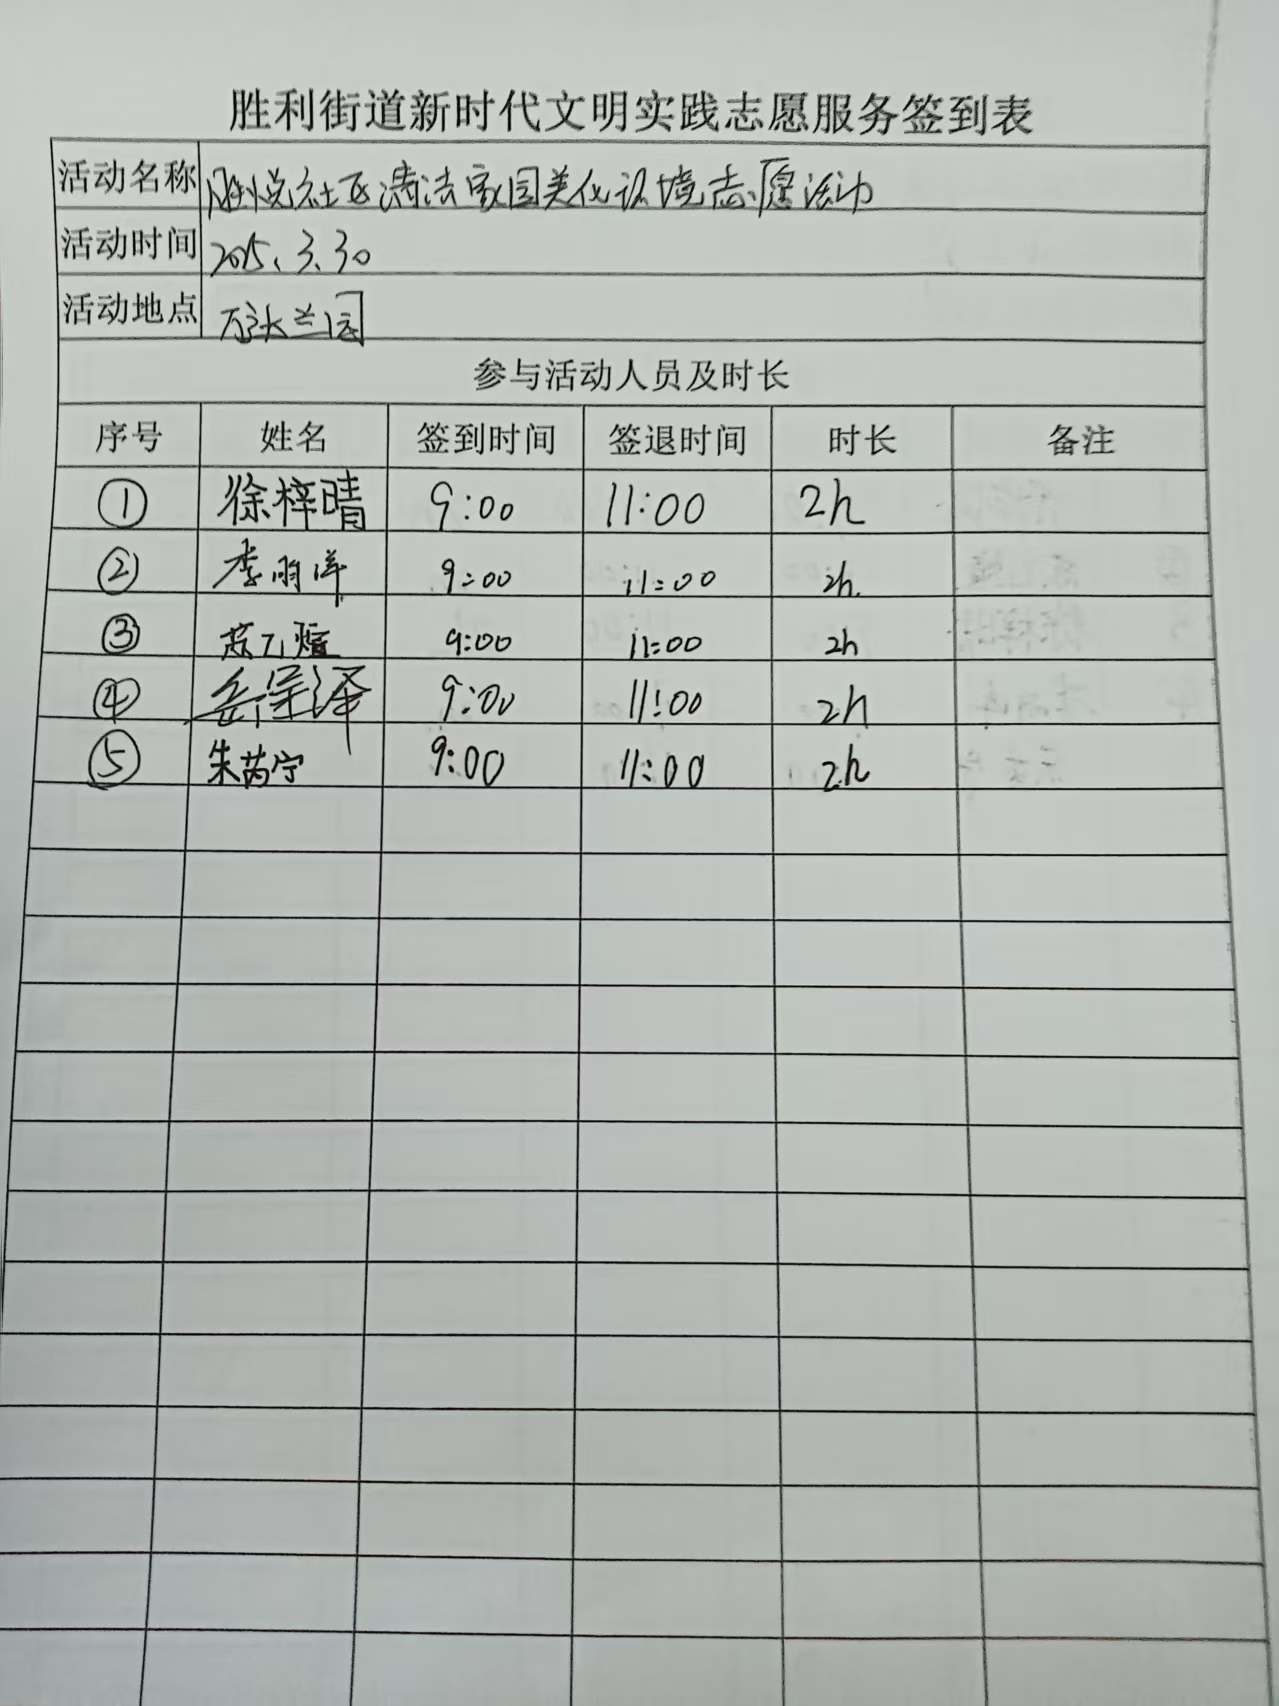 胜利街道新时代文明实践志愿服务签到表
活动名称 胜悦社区清洁家园美化环境志愿活动
活动时间 2025.3.30
活动地点 万达兰园
参与活动人员及时长
序号 姓名 签到时间 签退时间 时长 备注
① 徐梓晴 9:00 11:00 2h
② 李雨洋 9:00 11:00 2h
③ 9:00 11:00 2h
④ 9:00 11:00 2h
⑤ 朱芮宁 9:00 11:00 2h